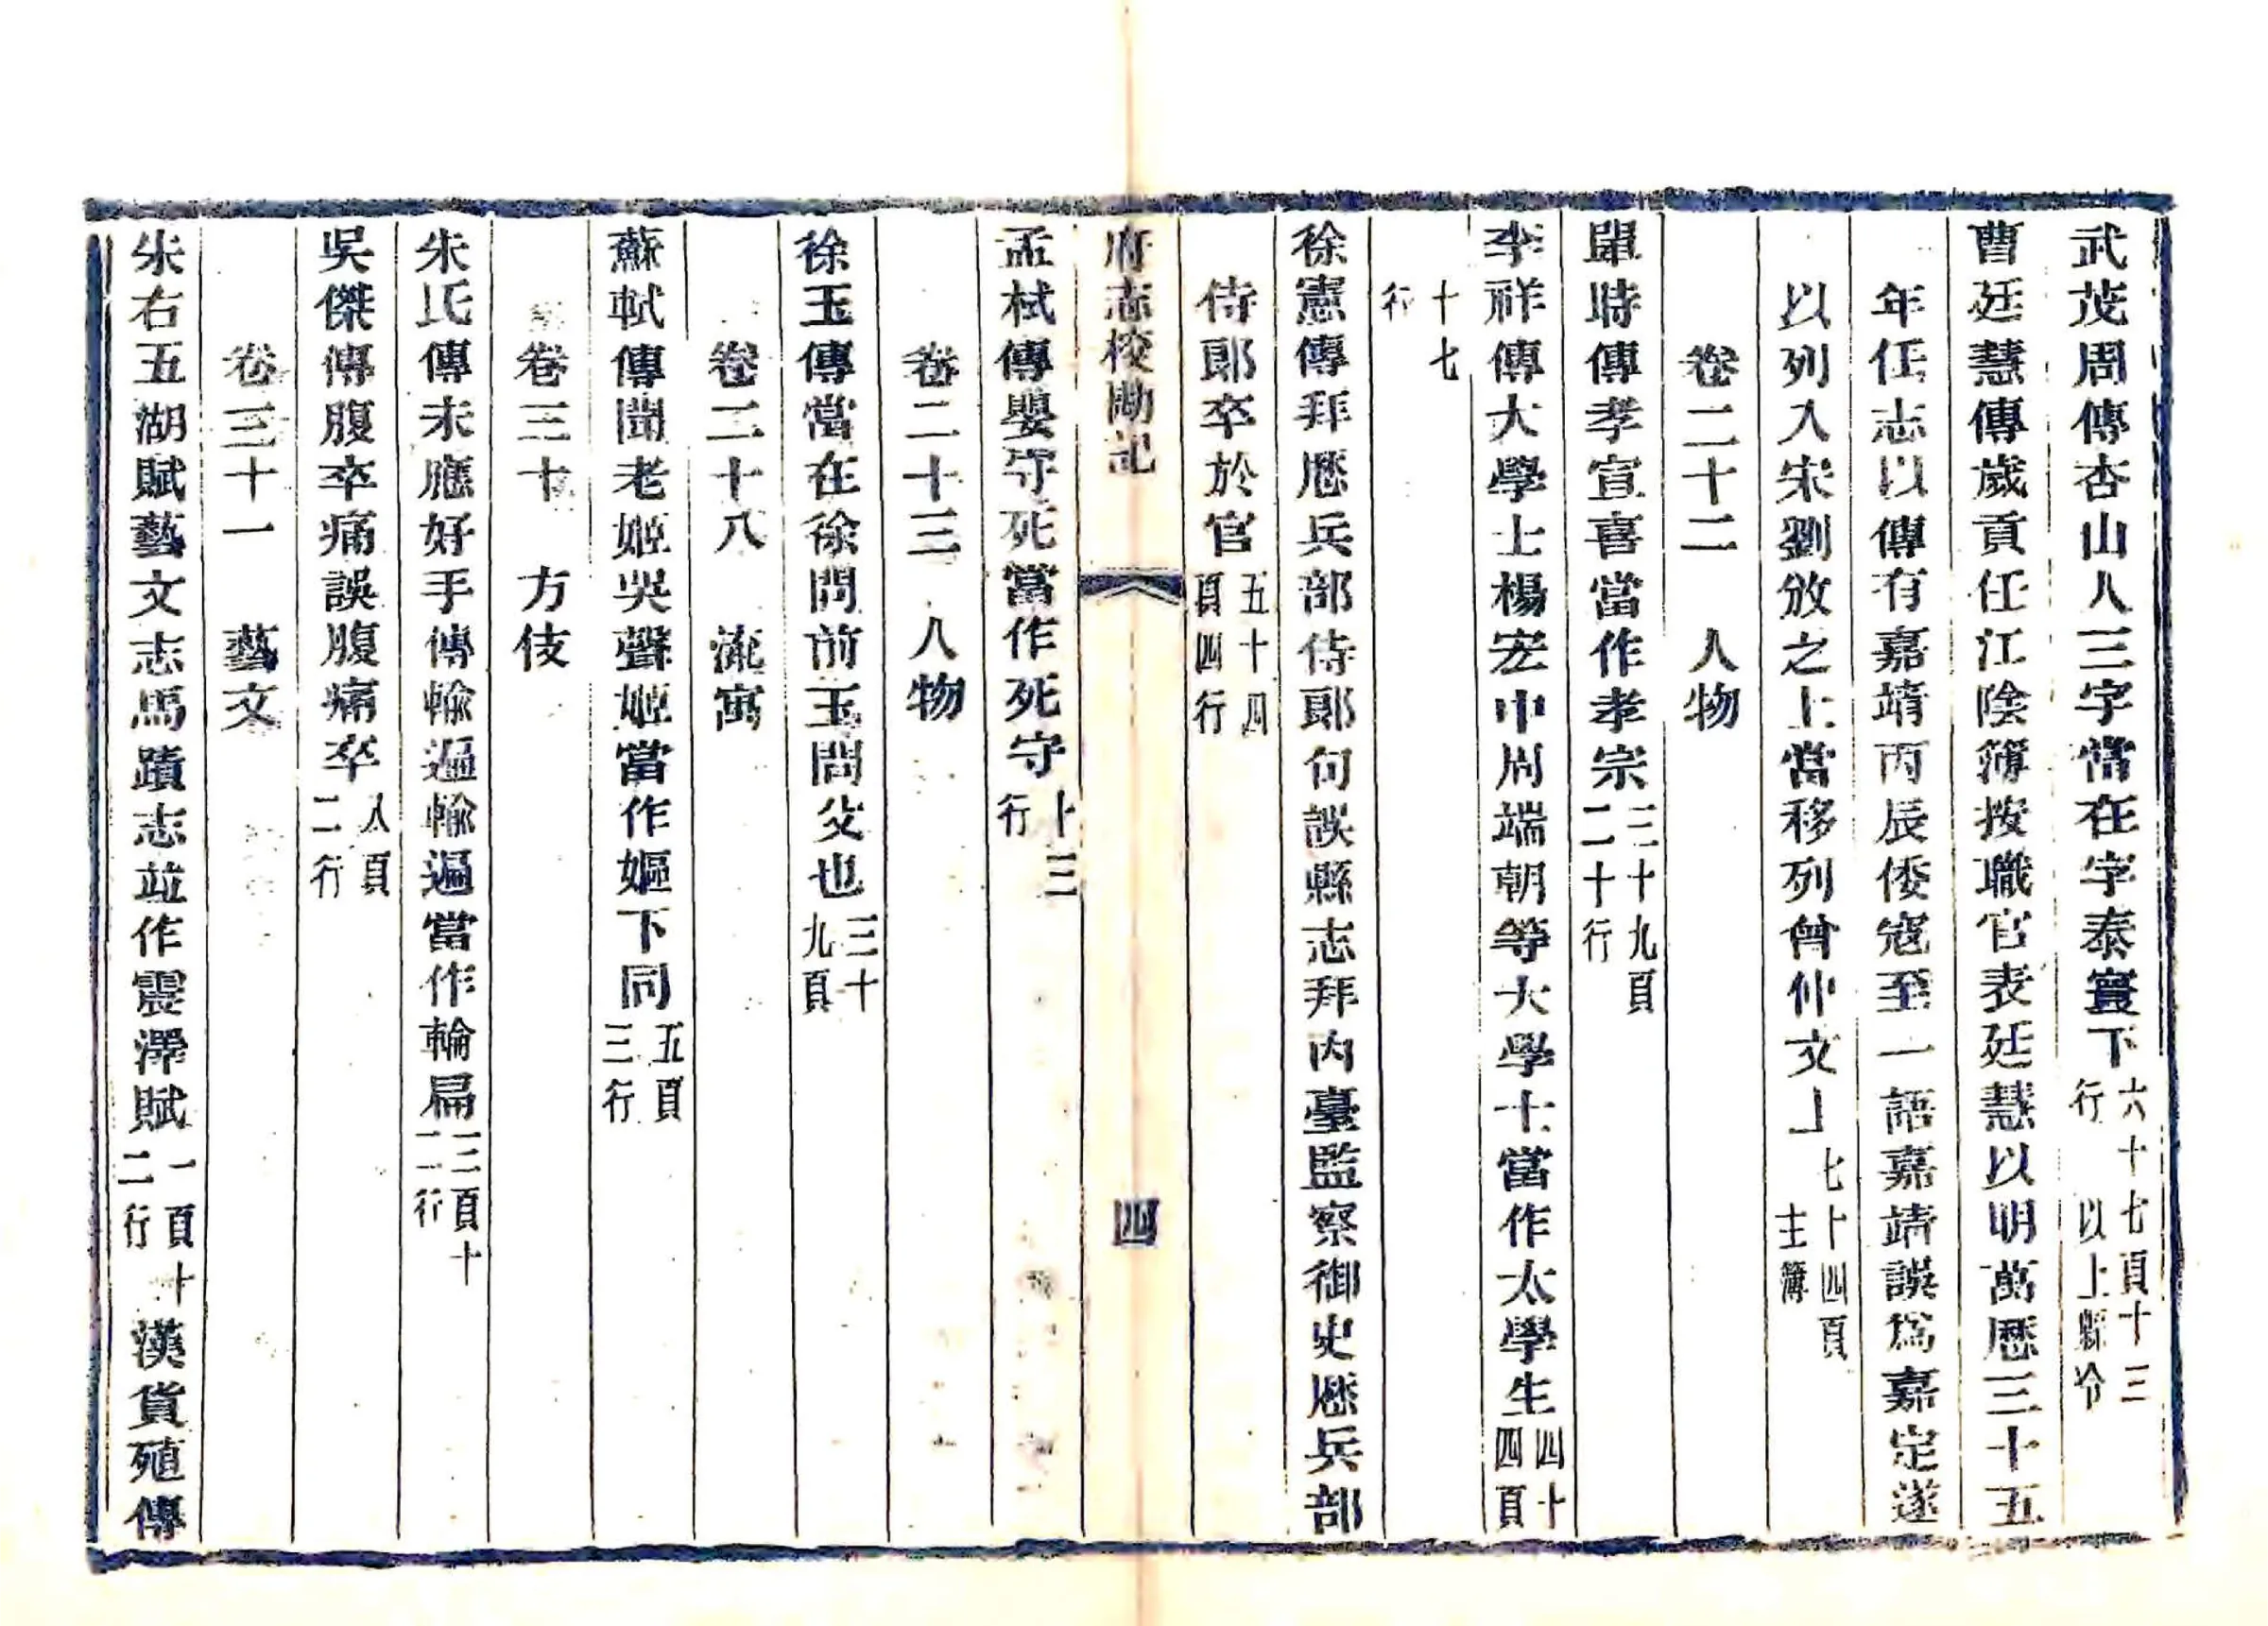 武茂周傳杏山人三字當在字泰寰下六十七頁十三行 以上縣令
曹廷慧傳歲貢任江陰簿按職官表廷慧以明萬歷三十五
年任志以傳有嘉靖丙辰倭寇至一語嘉靖誤爲嘉定遂
以列入宋劉攽之上當移列曾仲文上七十四頁 主簿
卷二十二 人物
單時傳孝宣喜當作孝宗三十九頁二十行
李祥傳大學士楊宏中周端朝等大學士當作太學生四十四頁
十七行
徐憲傳拜歷兵部侍郎句誤縣志拜內臺監察御史歷兵部
侍郎卒於官五十四頁四行
府志校勘記
四
孟栻傳嬰守死當作死守十三行
卷二十三 人物
徐玉傳當在徐問前玉問父也三十九頁
卷二十八 流寓
蘇軾傳聞老姬吳聲姬當作嫗下同五頁三行
卷三十 方伎
朱氏傳未應好手傳輸遍輸遍當作輪扁三頁十二行
吳傑傳腹卒痛誤腹痛卒八頁二行
卷三十一 藝文
朱右五湖賦藝文志馬蹟志竝作震澤賦一頁十二行漢貨殖傳